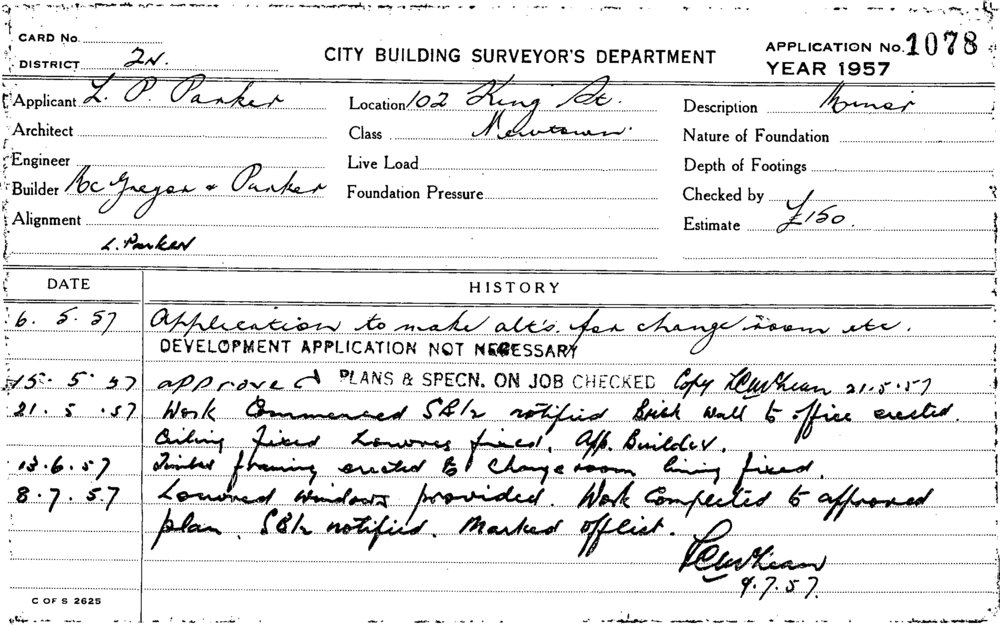 CARD No.
DISTRICT 2N.
CITY BUILDING SURVEYOR'S DEPARTMENT
APPLICATION No. 1078
YEAR 1957
Applicant L. P. Parker
Location 102 King St.
Description Minor
Architect
Class Newtown.
Nature of Foundation
Engineer
Live Load
Depth of Footings
Builder McGregor & Parker
Foundation Pressure
Checked by
Alignment
Estimate £150.
L. Parker
DATE HISTORY
6. 5. 57 Application to make alt's for change room etc.
DEVELOPMENT APPLICATION NOT NECESSARY
15. 5. 57 approved PLANS & SPECN. ON JOB CHECKED Copy 21.5.57
21. 5. 57 Work Commenced notified Brick Wall to office erected.
Ceiling fixed Louvres fixed. App. Builder.
13.6.57 Timber framing erected to Change room lining fixed.
8.7.57 Louvred windows provided. Work Completed to approved
plan. notified. Marked off list.
9.7.57.
C OF S 2625